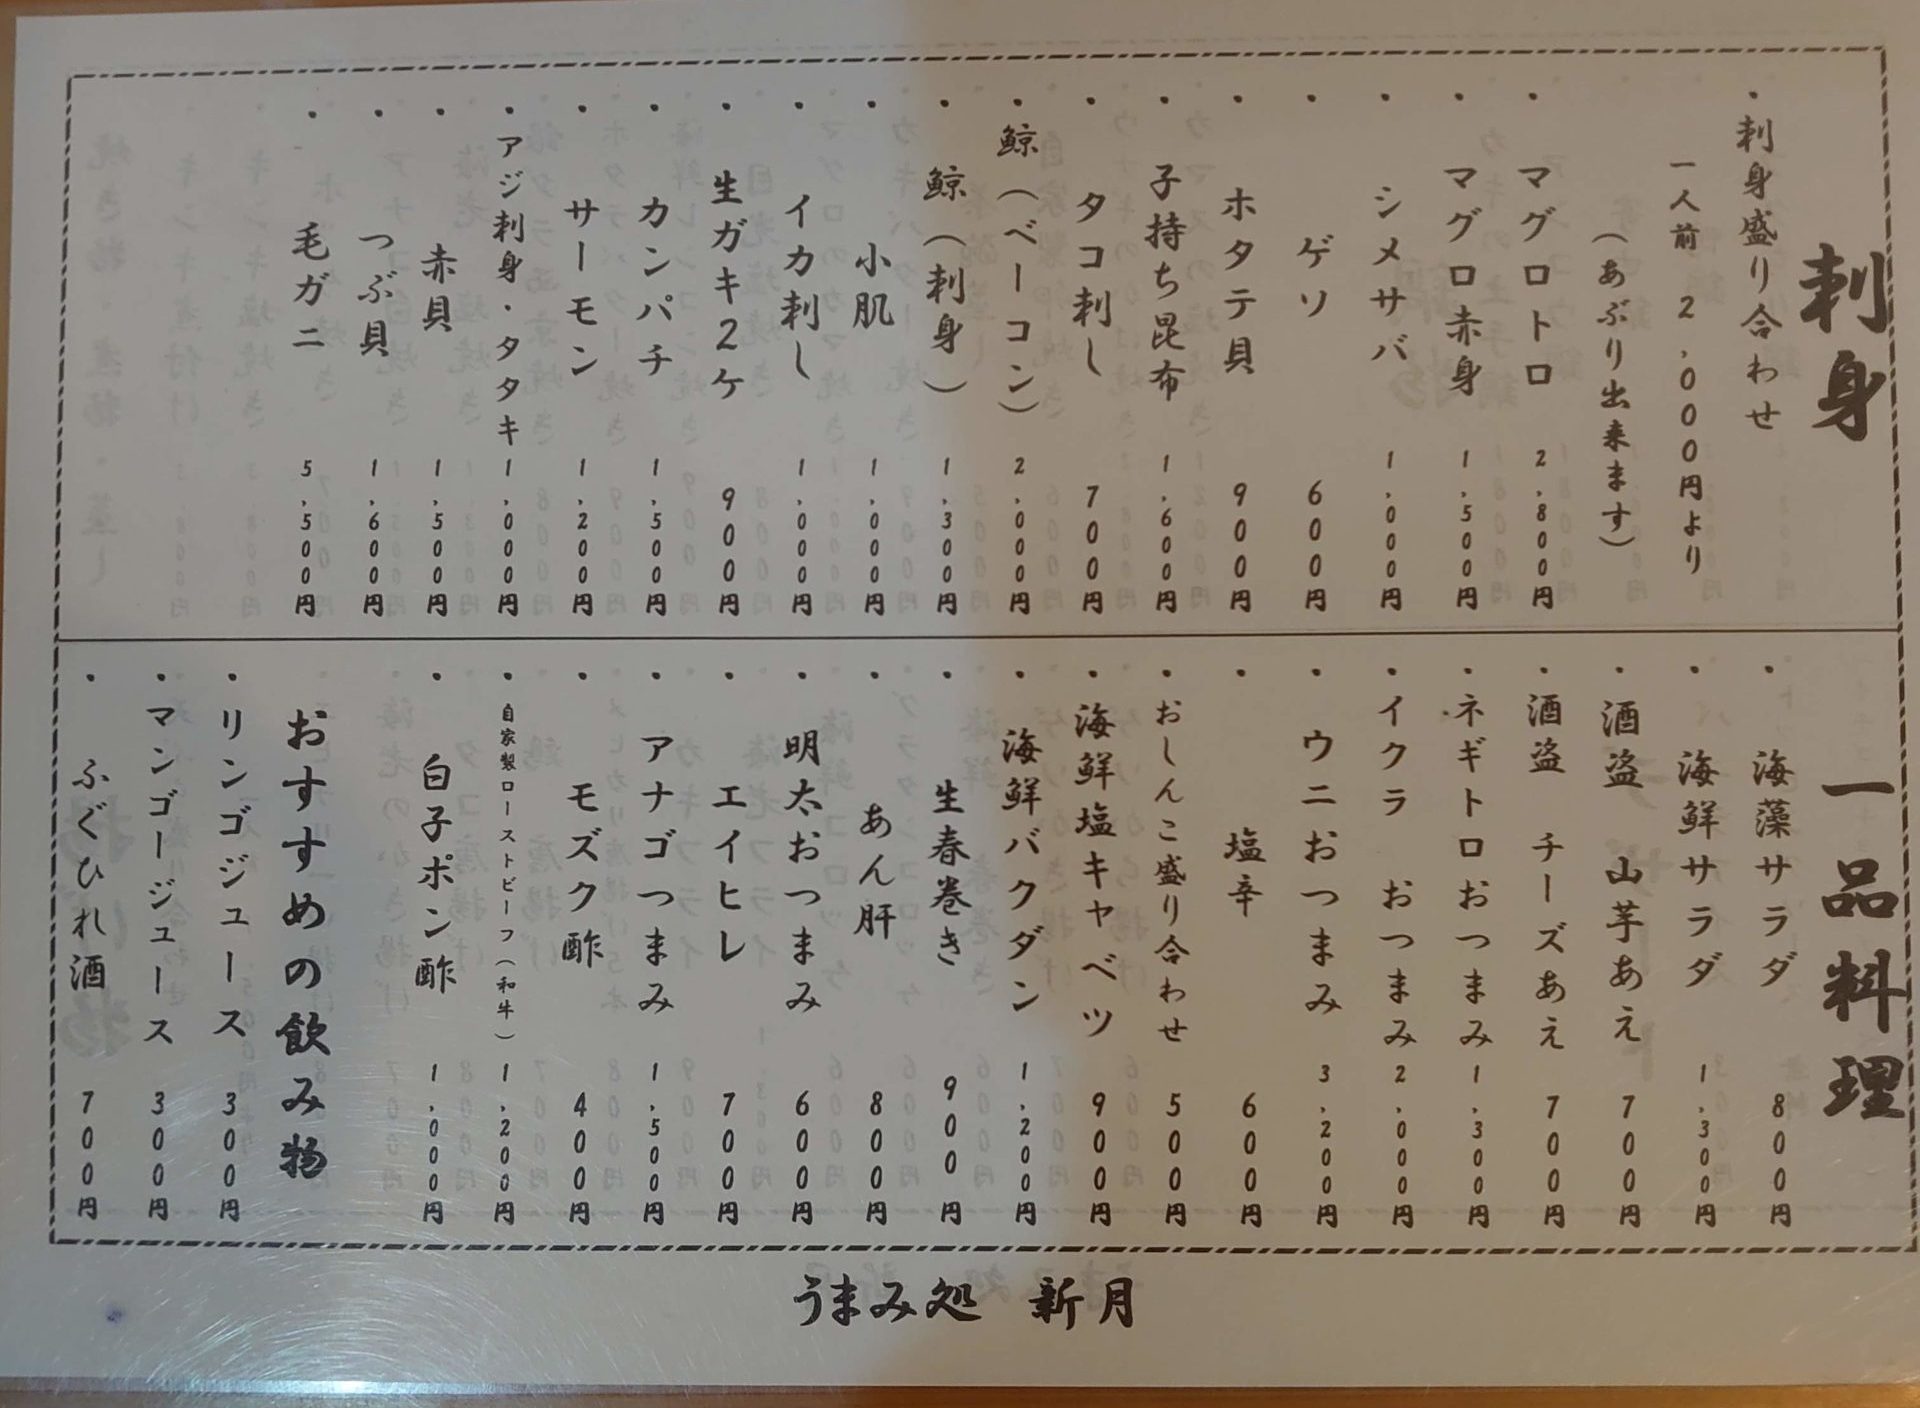 刺身
・刺身盛り合わせ
一人前 2,000円より
（あぶり出来ます）
・マグロトロ 2,800円
・マグロ赤身 1,500円
・シメサバ 1,000円
・ゲソ 600円
・ホタテ貝 900円
・子持ち昆布 1,600円
・タコ刺し 700円
・鯨（ベーコン） 2,000円
・鯨（刺身） 1,300円
・小肌 1,000円
・イカ刺し 1,000円
・生ガキ2ケ 900円
・カンパチ 1,500円
・サーモン 1,200円
・アジ刺身・タタキ 1,000円
・赤貝 1,500円
・つぶ貝 1,600円
・毛ガニ 5,500円
一品料理
・海藻サラダ 800円
・海鮮サラダ 1,300円
・酒盗 山芋あえ 700円
・酒盗 チーズあえ 700円
・ネギトロおつまみ 1,300円
・イクラ おつまみ 2,000円
・ウニおつまみ 3,200円
・塩辛 600円
・おしんこ盛り合わせ 500円
・海鮮塩キャベツ 900円
・海鮮バクダン 1,200円
・生春巻き 900円
・あん肝 800円
・明太おつまみ 600円
・エイヒレ 700円
・アナゴつまみ 1,500円
・モズク酢 400円
・自家製ローストビーフ（和牛） 1,200円
・白子ポン酢 1,000円
おすすめの飲み物
・リンゴジュース 300円
・マンゴージュース 300円
・ふぐひれ酒 700円
うまみ処 新月